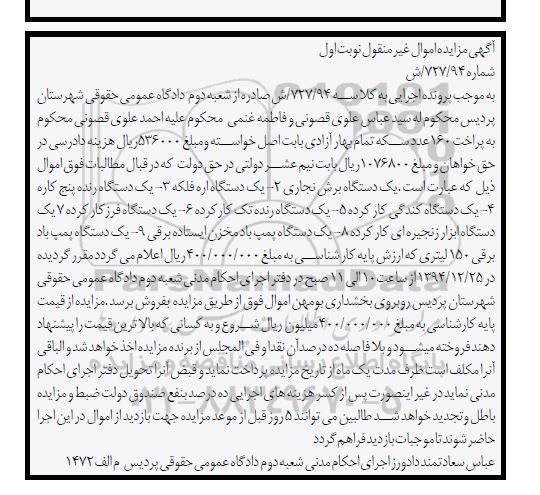 آگهی مزایده اموال غیر منقول نوبت اول
شماره ۷۲۷/۹۴/ش
به موجب پرونده اجرایی به کلاسه ۷۲۷/۹۴/ش صادره از شعبه دوم دادگاه عمومی حقوقی شهرستان
پردیس محکوم له سید عباس علوی قصونی و فاطمه غنمی محکوم علیه احمد علوی قصونی محکوم
به پراخت ۱۶۰ عدد سکه تمام بهار آزادی بابت اصل خواسته و مبلغ ۵۳۶۰۰۰ ریال هزینه دادرسی در
حق خواهان و مبلغ ۱۰۷۶۸۰۰ ریال بابت نیم عشر دولتی در حق دولت که در قبال مطالبات فوق اموال
ذیل که عبارت است. یک دستگاه برش نجاری ۲- یک دستگاه اره فلکه ۳- یک دستگاه رنده پنج کاره
۴- یک دستگاه کندگی کار کرده ۵- یک دستگاه رنده تک کار کرده ۶- یک دستگاه فرز کار کرده ۷ یک
دستگاه ابزار زنجیره ای کار کرده ۸- یک دستگاه پمپ باد مخزن ایستاده برقی ۹- یک دستگاه پمپ باد
برقی ۱۵۰ لیتری که ارزش پایه کارشناسی به مبلغ ۴۰۰/۰۰۰/۰۰۰ ریال اعلام می گردد مقرر گردیده
در ۱۳۹۴/۱۲/۲۵ از ساعت ۱۰ الی ۱۱ صبح در دفتر اجرای احکام مدنی شعبه دوم دادگاه عمومی حقوقی
شهرستان پردیس روبروی بخشداری بومهن اموال فوق از طریق مزایده بفروش برسد. مزایده از قیمت
پایه کارشناسی به مبلغ ۴۰۰/۰۰۰/۰۰۰ میلیون ریال شروع و به کسانی که بالاترین قیمت را پیشنهاد
دهند فروخته میشود و بلا فاصله ده درصد آن نقدا و فی المجلس از برنده مزایده اخذ خواهد شد و الباقی
آنرا مکلف است ظرف مدت یک ماه از تاریخ مزایده پرداخت نماید و قبض آنرا تحویل دفتر اجرای احکام
مدنی نماید در غیر اینصورت پس از کسر هزینه های اجرایی ده درصد بنفع صندوق دولت ضبط و مزایده
باطل و تجدید خواهد شد طالبین می توانند ۵ روز قبل از موعد مزایده جهت بازدید از اموال در این اجرا
حاضر شوند تا موجبات بازدید فراهم گردد
عباس سعادتمند دادورز اجرای احکام مدنی شعبه دوم دادگاه عمومی حقوقی پردیس م الف ۱۴۷۲